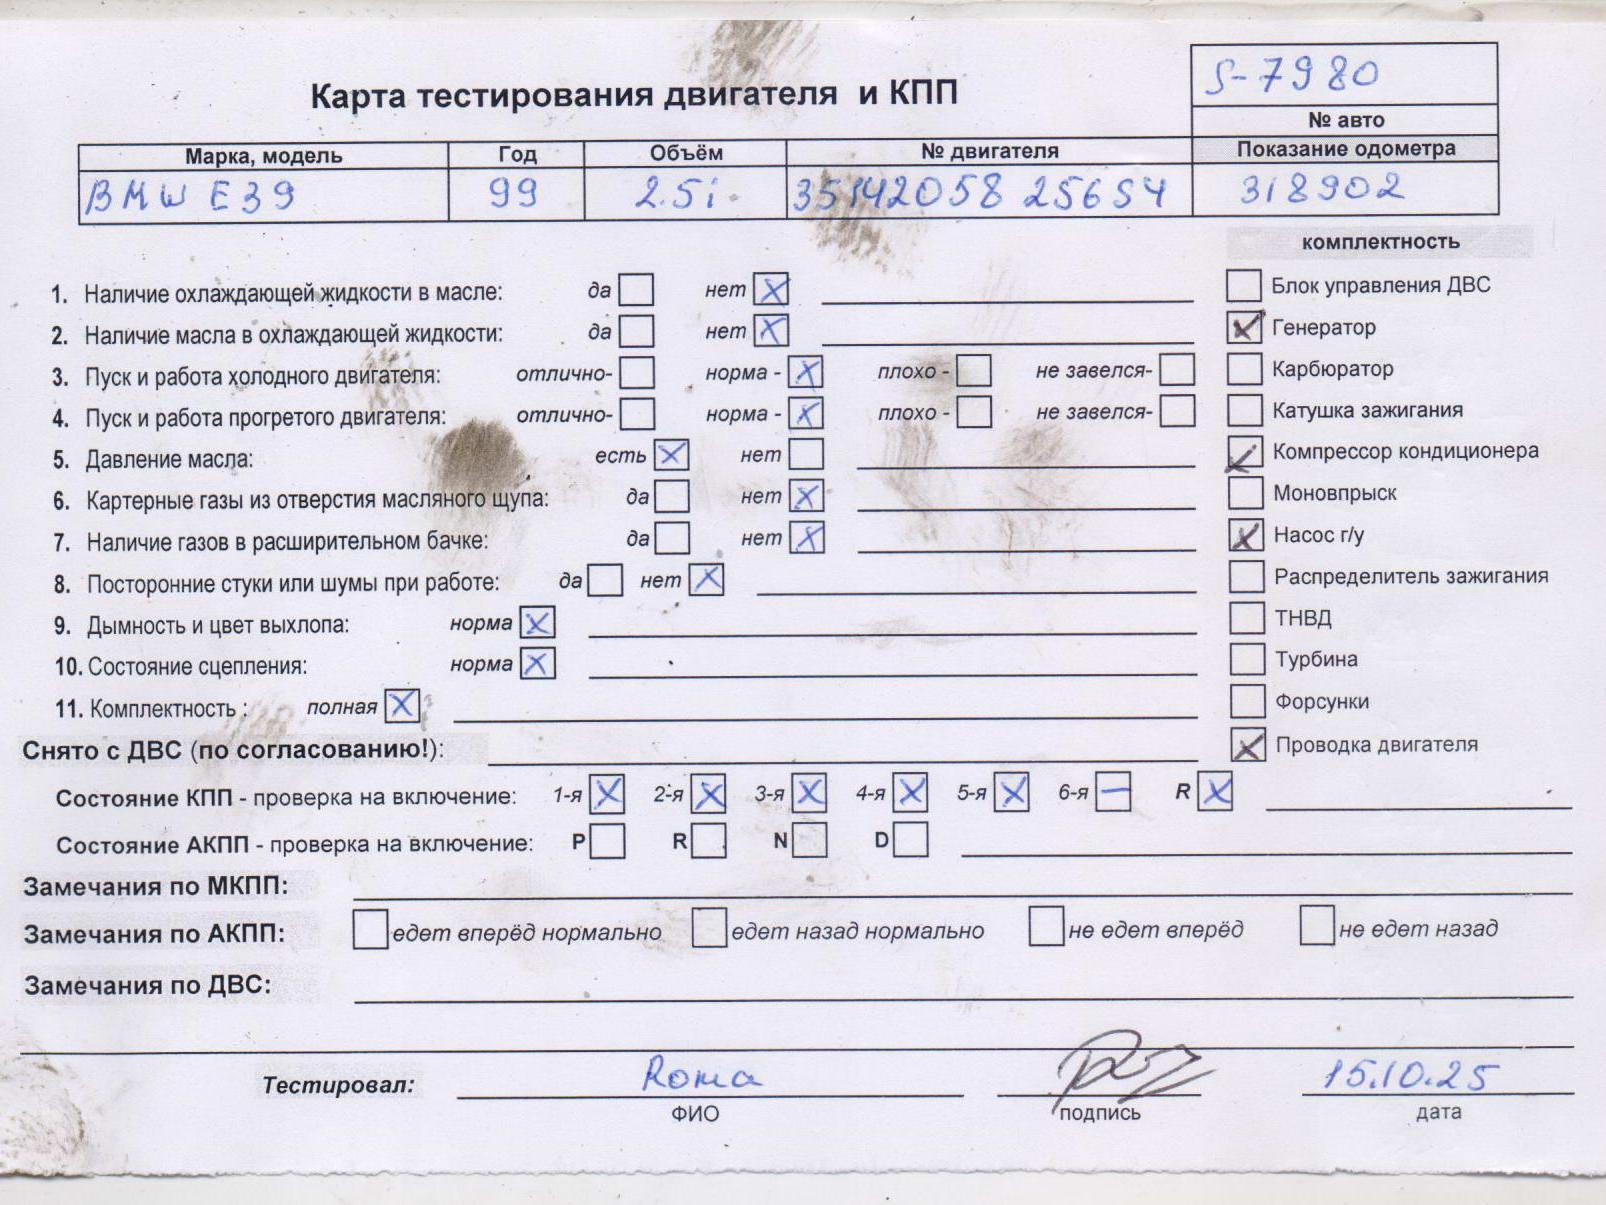 S-7980
Карта тестирования двигателя и КПП
№ авто
Марка, модель Год Объём № двигателя Показание одометра
BMW E39 99 2.5i 35142058 256S4 318902
комплектность
1. Наличие охлаждающей жидкости в масле: да нет X Блок управления ДВС
2. Наличие масла в охлаждающей жидкости: да нет X X Генератор
3. Пуск и работа холодного двигателя: отлично- норма - X плохо - не завелся- Карбюратор
4. Пуск и работа прогретого двигателя: отлично- норма - X плохо - не завелся- Катушка зажигания
5. Давление масла: есть X нет ✓ Компрессор кондиционера
6. Картерные газы из отверстия масляного щупа: да нет X Моновпрыск
7. Наличие газов в расширительном бачке: да нет X X Насос г/у
8. Посторонние стуки или шумы при работе: да нет X Распределитель зажигания
9. Дымность и цвет выхлопа: норма X ТНВД
10. Состояние сцепления: норма X Турбина
11. Комплектность : полная X Форсунки
Снято с ДВС (по согласованию!): X Проводка двигателя
Состояние КПП - проверка на включение: 1-я X 2-я X 3-я X 4-я X 5-я X 6-я – R X
Состояние АКПП - проверка на включение: P R N D
Замечания по МКПП:
Замечания по АКПП: едет вперёд нормально едет назад нормально не едет вперёд не едет назад
Замечания по ДВС:
Тестировал: Roma 15.10.25
ФИО подпись дата